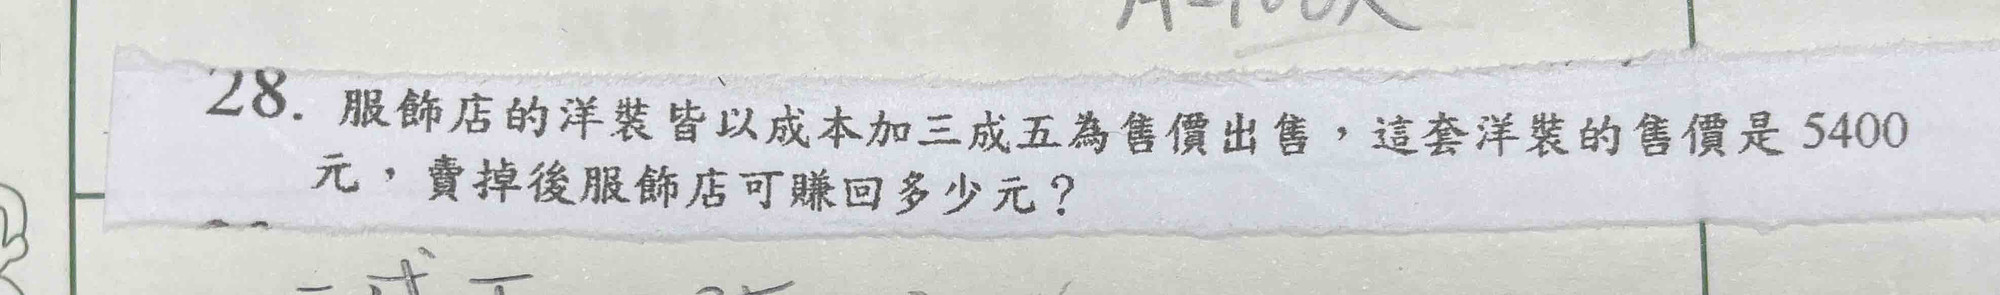 28. 服飾店的洋裝皆以成本加三成五為售價出售，這套洋裝的售價是 5400
元，賣掉後服飾店可賺回多少元？